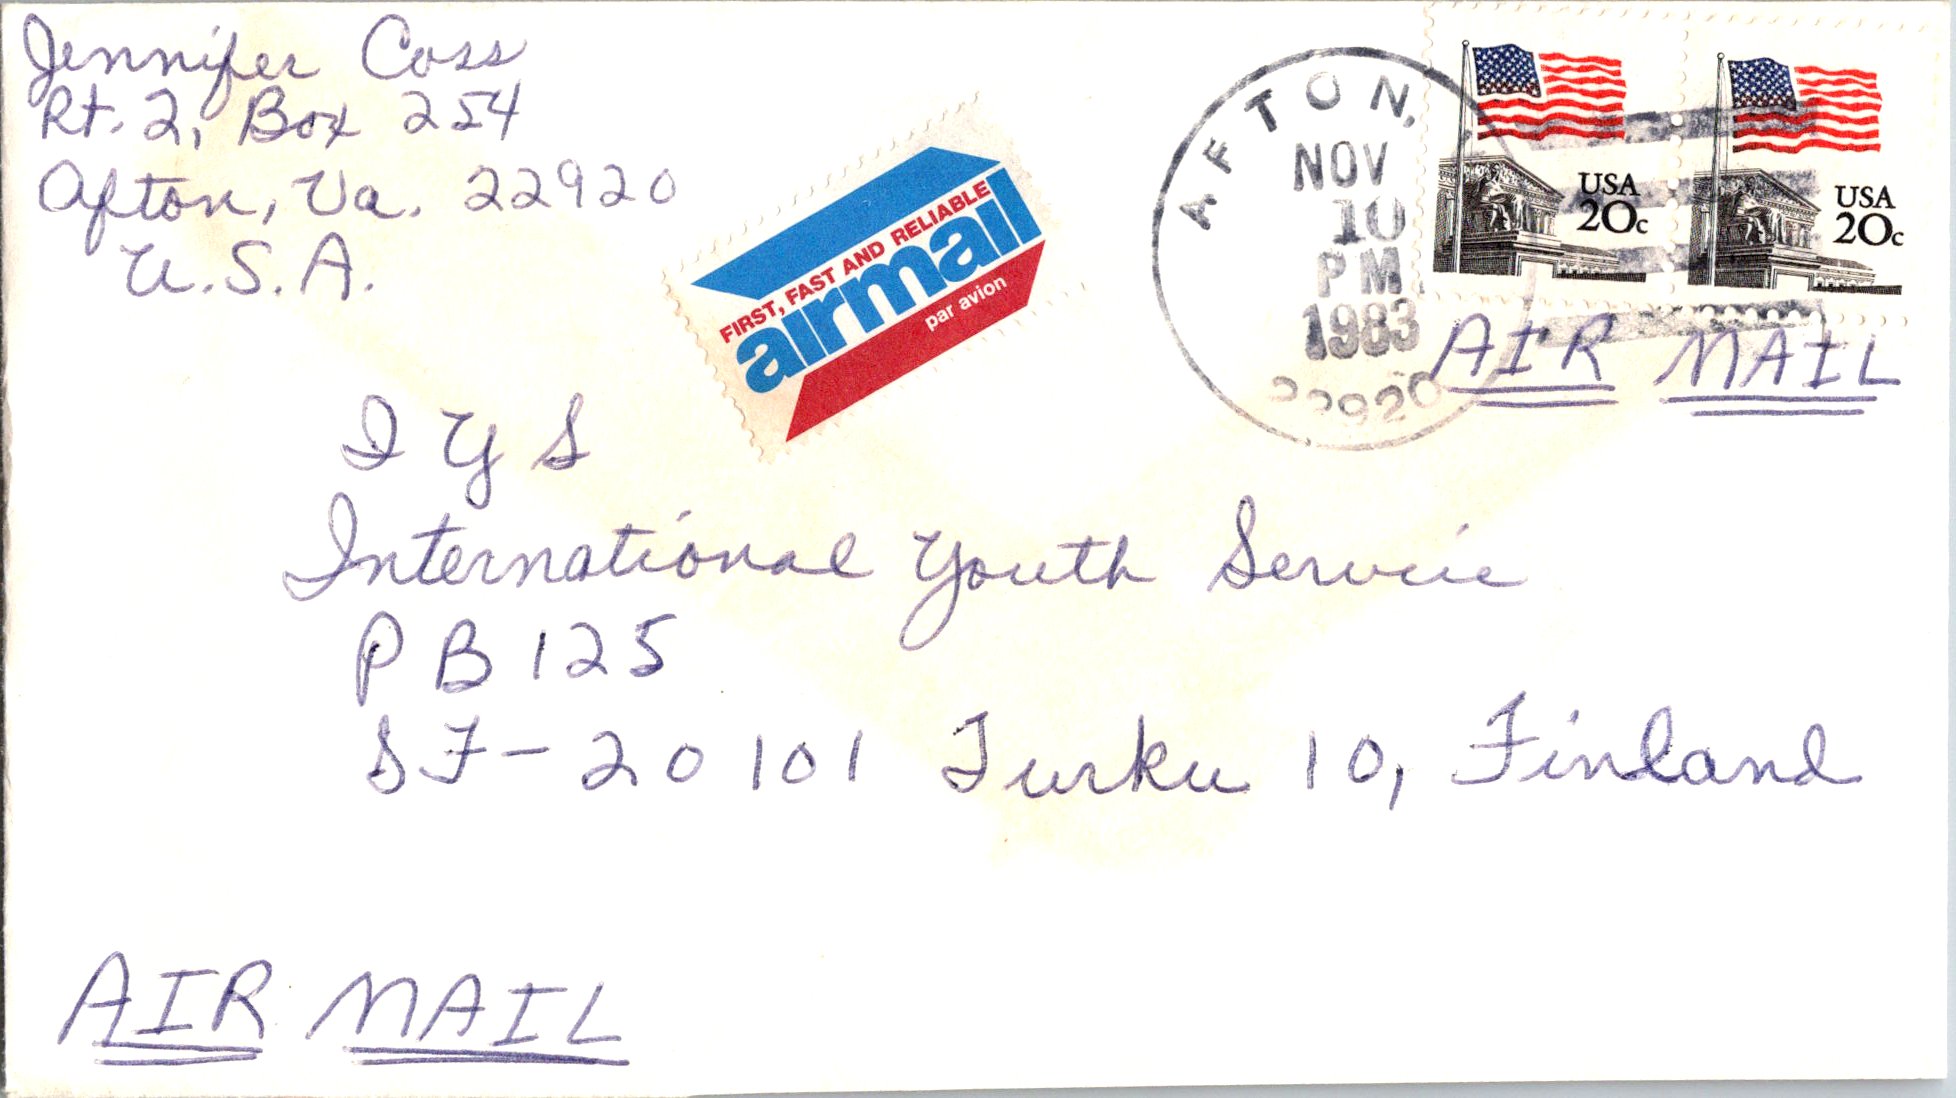 Jennifer Coss
Rt. 2, Box 254
Afton, Va. 22920
U.S.A.
FIRST, FAST AND RELIABLE
airmail
par avion
AFTON,
NOV
10
PM
1983
22920
USA
20c
USA
20c
AIR MAIL
I Y S
International Youth Service
P B 125
SF-20101 Turku 10, Finland
AIR MAIL